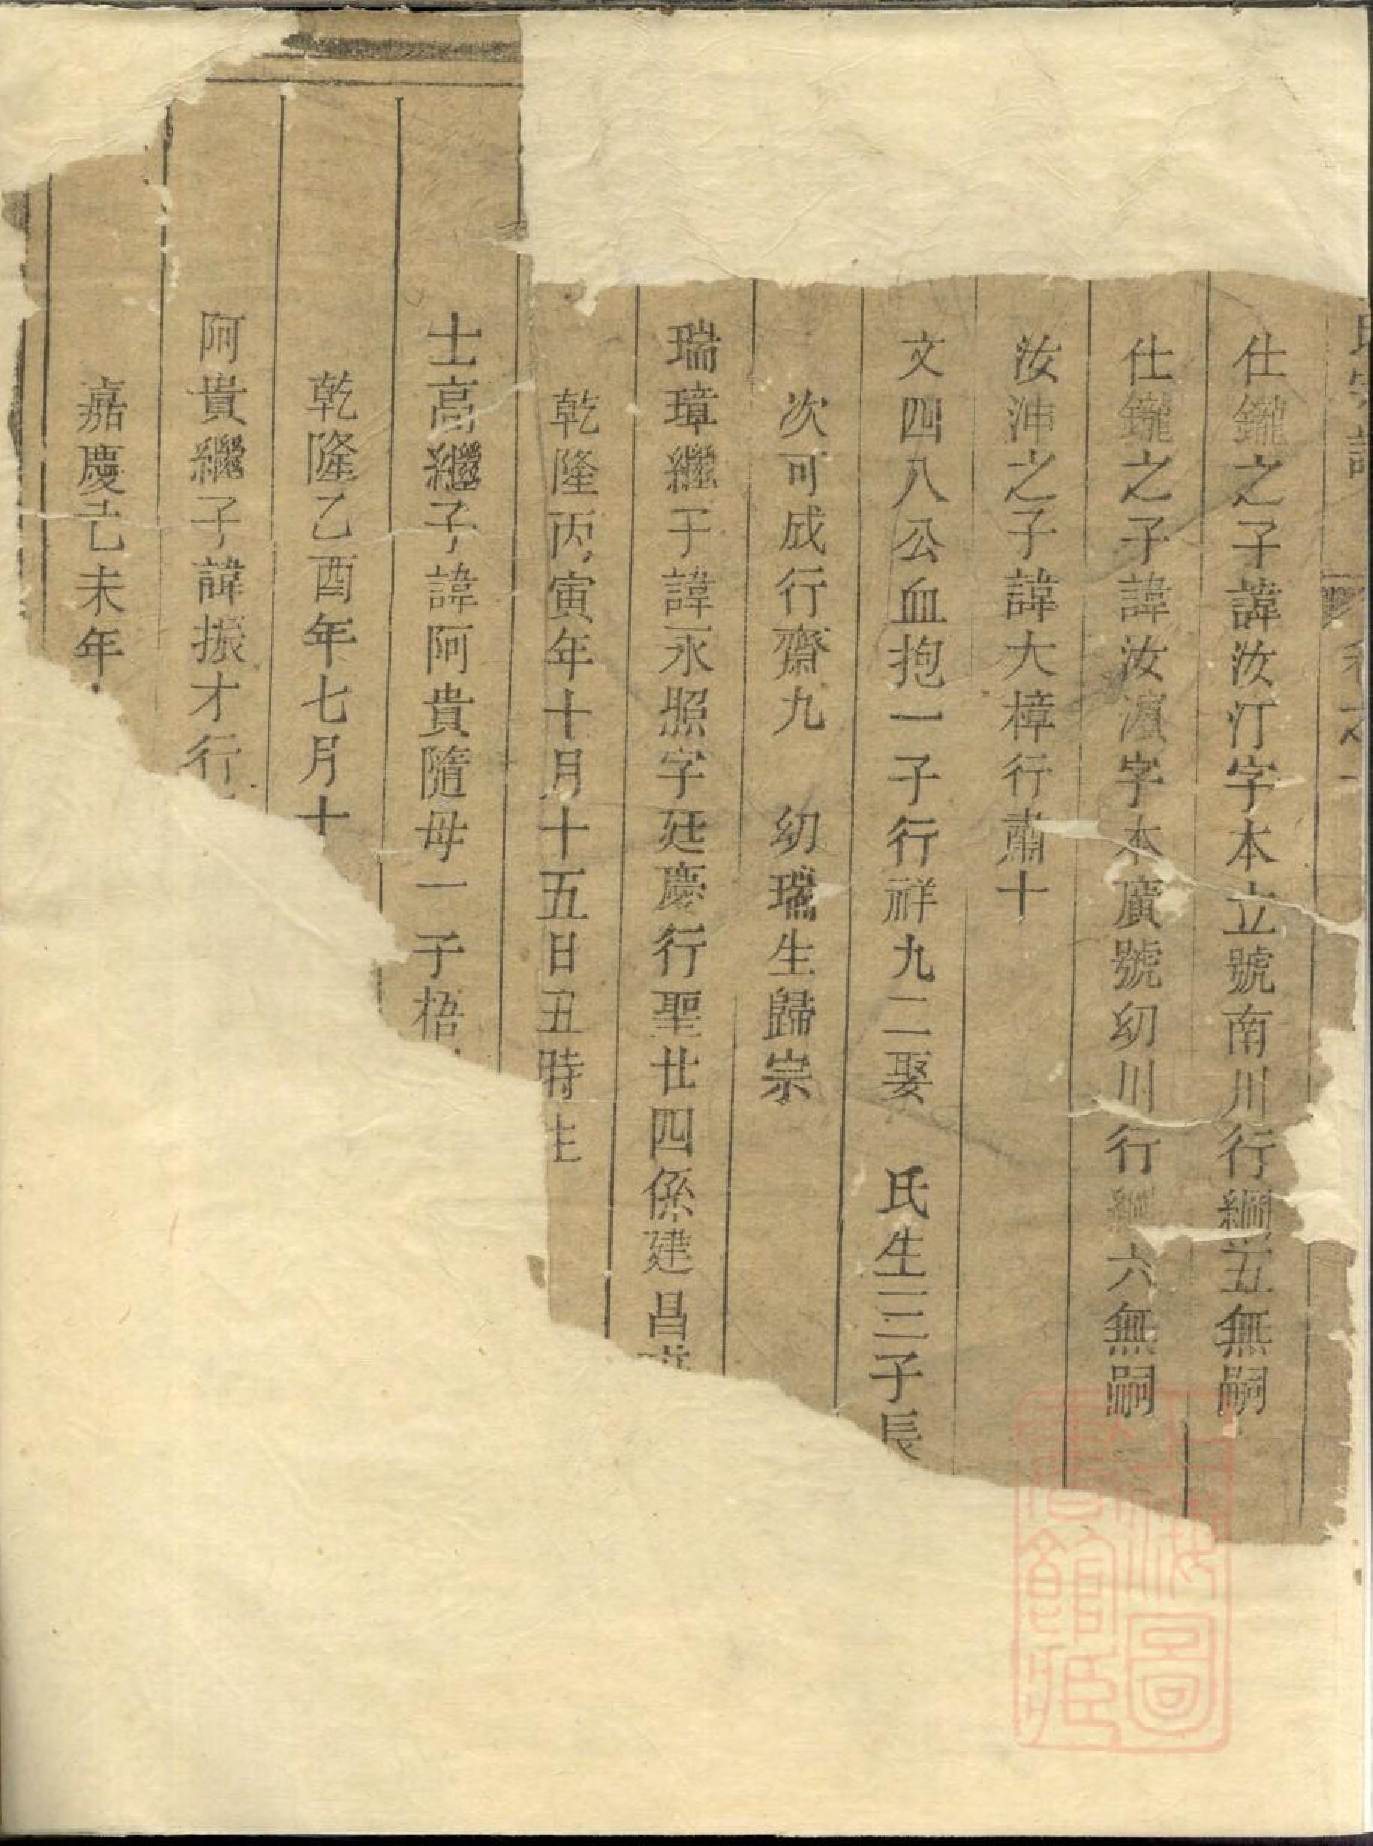 氏宗譜 卷之
仕鑨之子諱汝汀字本立號南川行綱五無嗣
仕鑨之子諱汝濵字本廣號幼川行綱六無嗣
汝沖之子諱大樟行肅十
文四八公血抱一子行祥九二娶 氏生三子長
次可成行齋九 幼瑞生歸宗
瑞璋繼子諱永照字廷慶行聖廿四係建昌
乾隆丙寅年十月十五日丑時生
士高繼子諱阿貴隨母一子梧
乾隆乙酉年七月十
阿貴繼子諱振才行
嘉慶己未年
上海圖書館藏